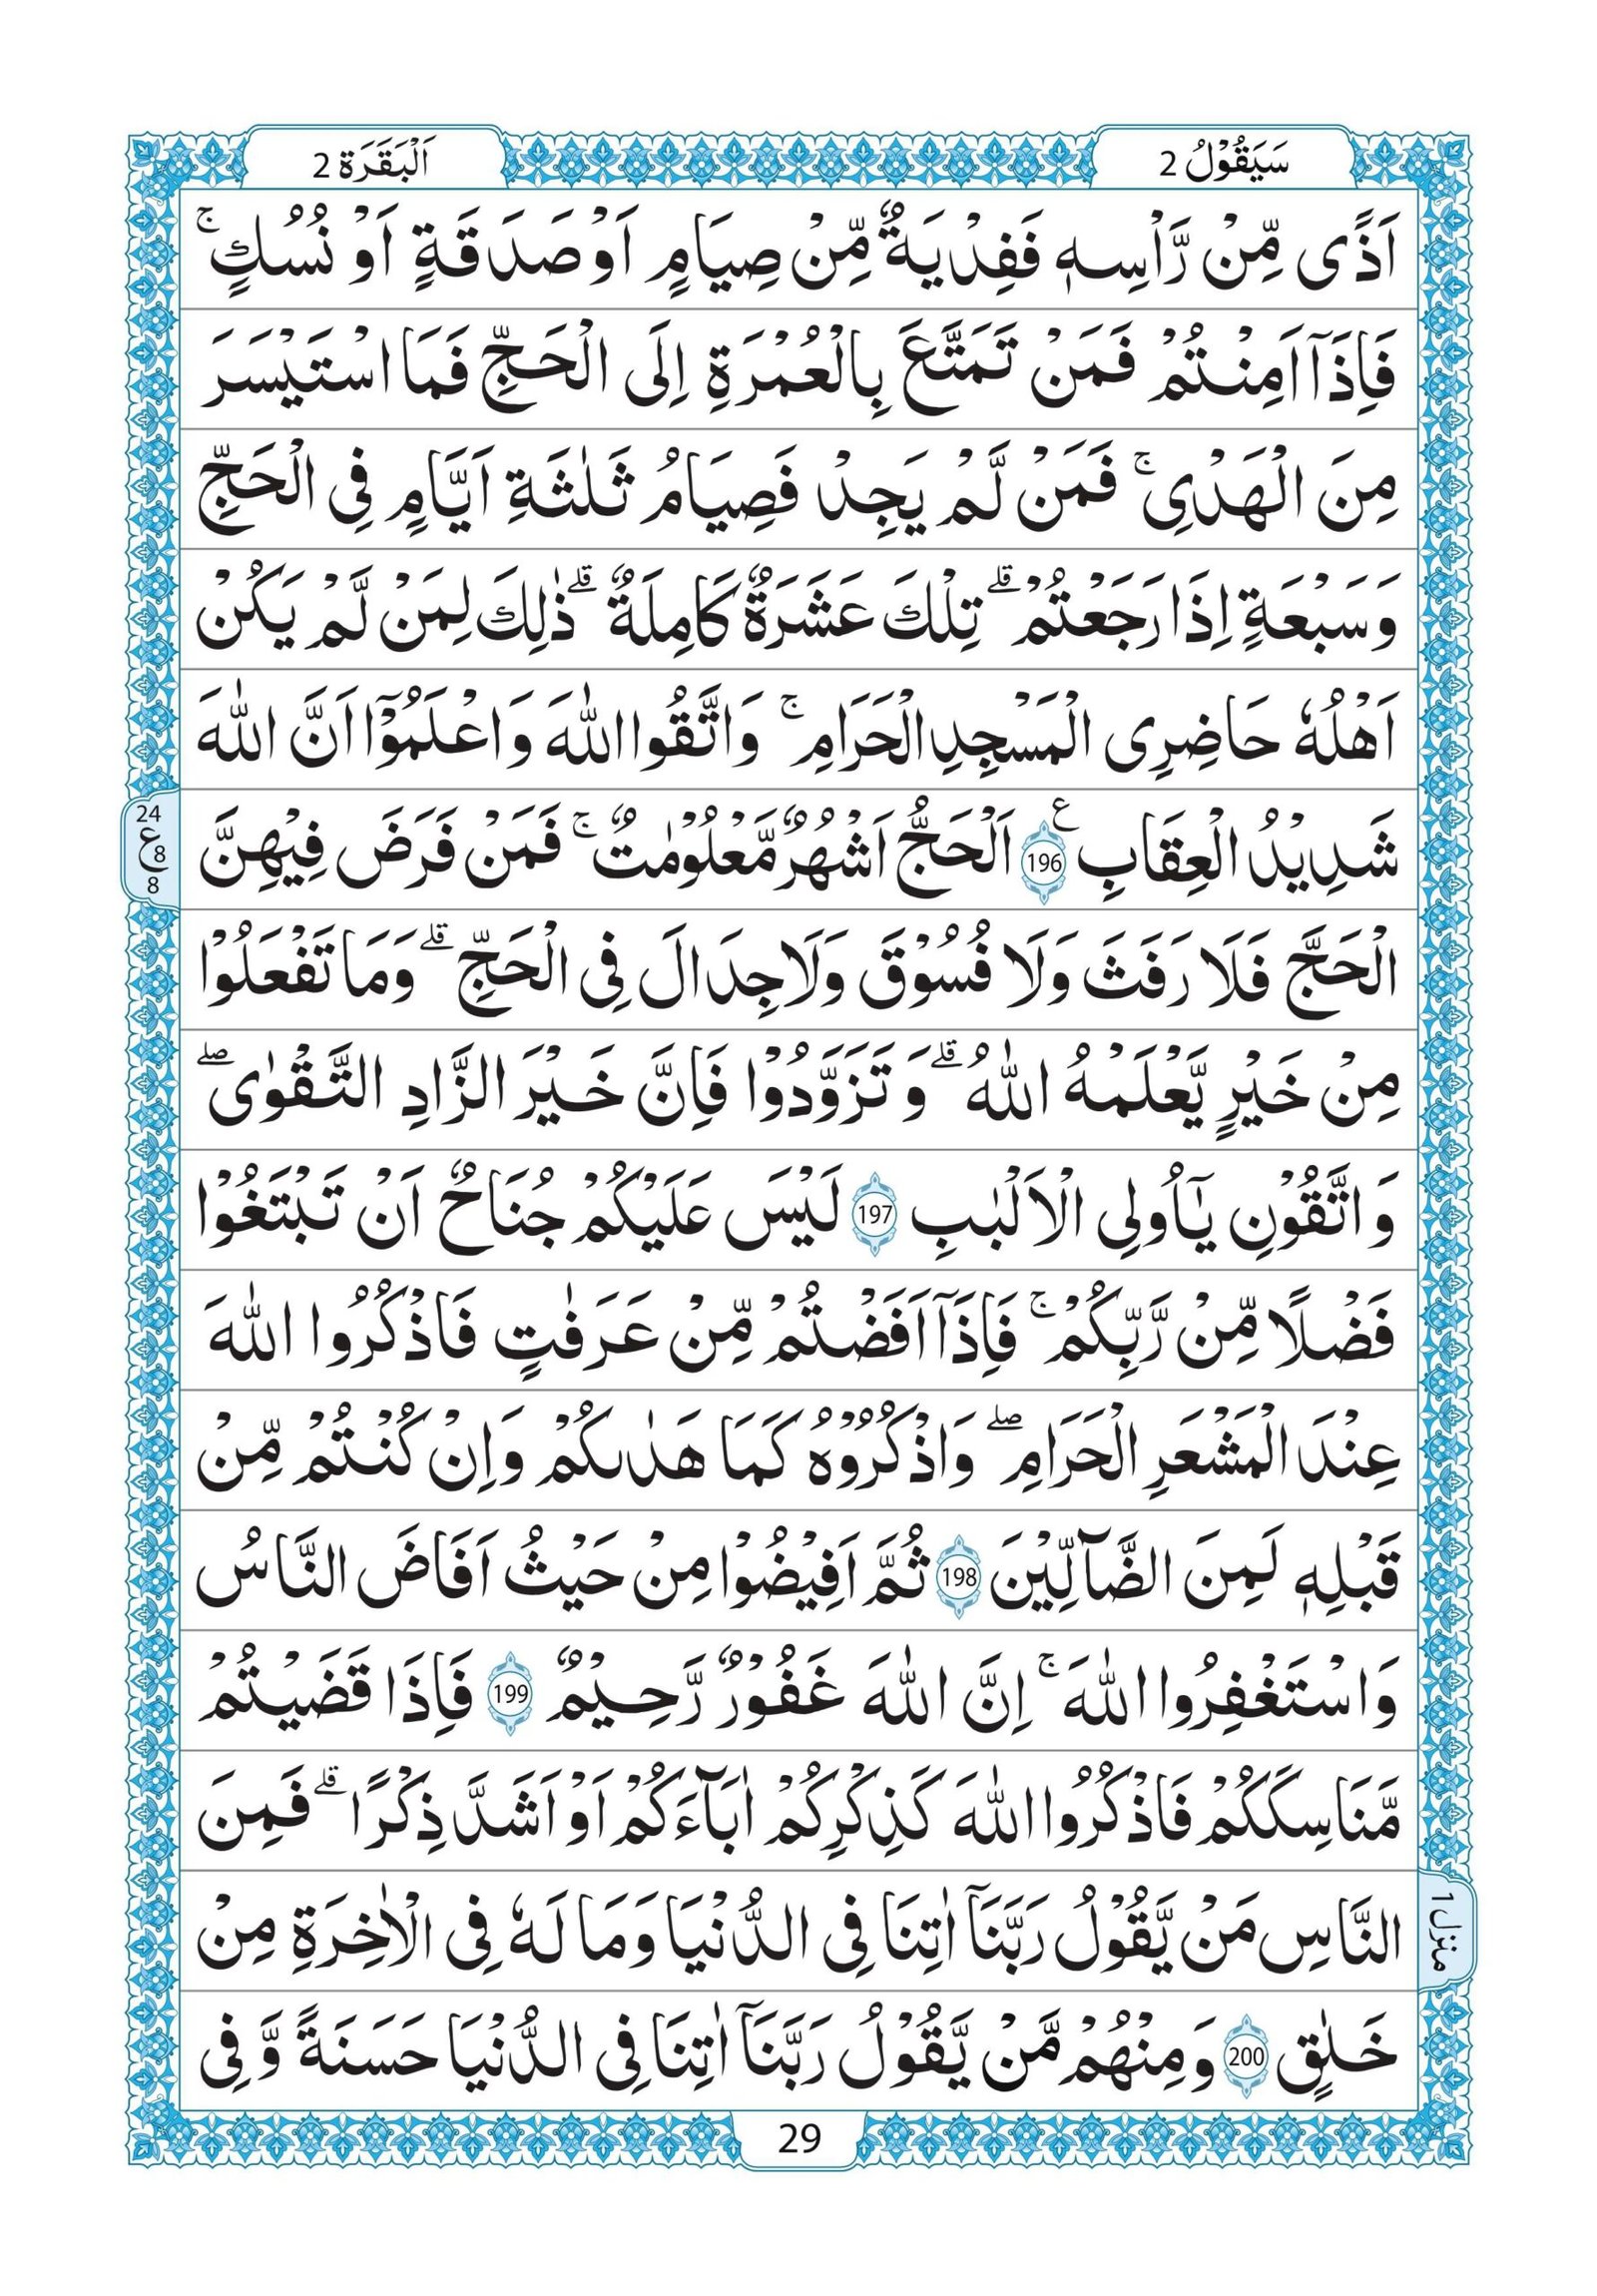 سَيَقُوْلُ 2
اَلْبَقَرَة 2
اَذًى مِّنْ رَّاْسِهٖ فَفِدْيَةٌ مِّنْ صِيَامٍ اَوْ صَدَقَةٍ اَوْ نُسُكٍ ۚ
فَاِذَاۤ اَمِنْتُمْ فَمَنْ تَمَتَّعَ بِالْعُمْرَةِ اِلَى الْحَجِّ فَمَا اسْتَيْسَرَ
مِنَ الْهَدْىِ ۚ فَمَنْ لَّمْ يَجِدْ فَصِيَامُ ثَلٰثَةِ اَيَّامٍ فِى الْحَجِّ
وَسَبْعَةٍ اِذَا رَجَعْتُمْ ۗ تِلْكَ عَشَرَةٌ كَامِلَةٌ ۗ ذٰلِكَ لِمَنْ لَّمْ يَكُنْ
اَهْلُهٗ حَاضِرِى الْمَسْجِدِ الْحَرَامِ ۚ وَاتَّقُوا اللّٰهَ وَاعْلَمُوْۤا اَنَّ اللّٰهَ
شَدِيْدُ الْعِقَابِ ع 196 اَلْحَجُّ اَشْهُرٌ مَّعْلُوْمٰتٌ ۚ فَمَنْ فَرَضَ فِيْهِنَّ
24
ع 8
8
الْحَجَّ فَلَا رَفَثَ وَلَا فُسُوْقَ وَلَا جِدَالَ فِى الْحَجِّ ۗ وَمَا تَفْعَلُوْا
مِنْ خَيْرٍ يَّعْلَمْهُ اللّٰهُ ۗ وَتَزَوَّدُوْا فَاِنَّ خَيْرَ الزَّادِ التَّقْوٰى ۖ
وَاتَّقُوْنِ يٰۤاُولِى الْاَلْبٰبِ 197 لَيْسَ عَلَيْكُمْ جُنَاحٌ اَنْ تَبْتَغُوْا
فَضْلًا مِّنْ رَّبِّكُمْ ۚ فَاِذَاۤ اَفَضْتُمْ مِّنْ عَرَفٰتٍ فَاذْكُرُوا اللّٰهَ
عِنْدَ الْمَشْعَرِ الْحَرَامِ ۖ وَاذْكُرُوْهُ كَمَا هَدٰٮكُمْ وَاِنْ كُنْتُمْ مِّنْ
قَبْلِهٖ لَمِنَ الضَّآلِّيْنَ 198 ثُمَّ اَفِيْضُوْا مِنْ حَيْثُ اَفَاضَ النَّاسُ
وَاسْتَغْفِرُوا اللّٰهَ ۚ اِنَّ اللّٰهَ غَفُوْرٌ رَّحِيْمٌ 199 فَاِذَا قَضَيْتُمْ
مَّنَاسِكَكُمْ فَاذْكُرُوا اللّٰهَ كَذِكْرِكُمْ اٰبَآءَكُمْ اَوْ اَشَدَّ ذِكْرًا ۗ فَمِنَ
النَّاسِ مَنْ يَّقُوْلُ رَبَّنَاۤ اٰتِنَا فِى الدُّنْيَا وَمَا لَهٗ فِى الْاٰخِرَةِ مِنْ
منزل 1
خَلٰقٍ 200 وَمِنْهُمْ مَّنْ يَّقُوْلُ رَبَّنَاۤ اٰتِنَا فِى الدُّنْيَا حَسَنَةً وَّفِى
29